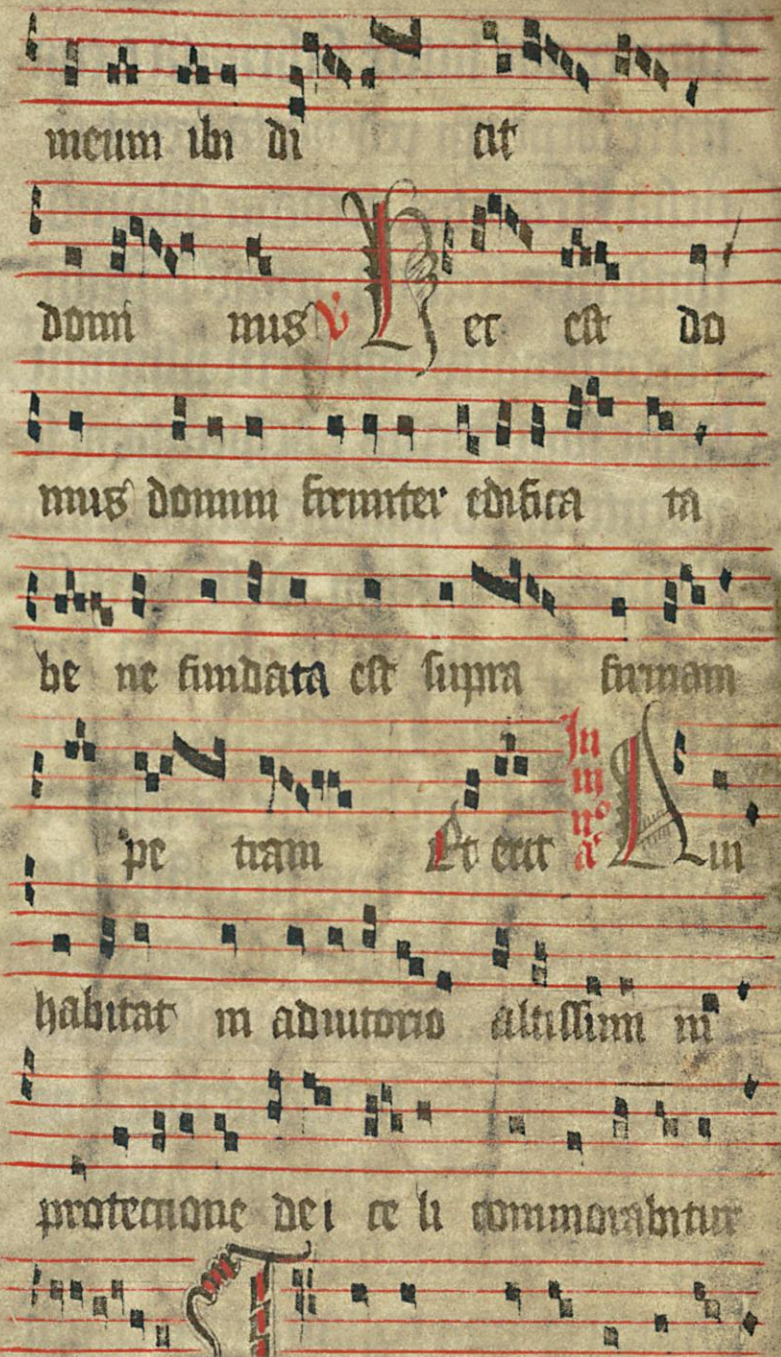 meum ibi di cit
domi nus V Hec est do
mus domini firmiter edifica ta
be ne fundata est supra firmam
pe tram Et erit In mo no a Qui
habitat in adiutorio altissimi in
protectione dei ce li commorabitur